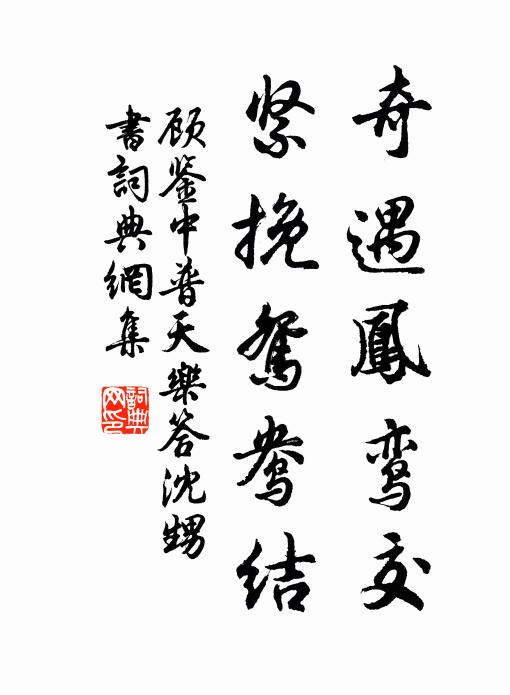 奇遇鳳鸾交
紧挽鸳鸯结
顾鉴中普天樂答沈甥
書詞典網集
詞典
网印